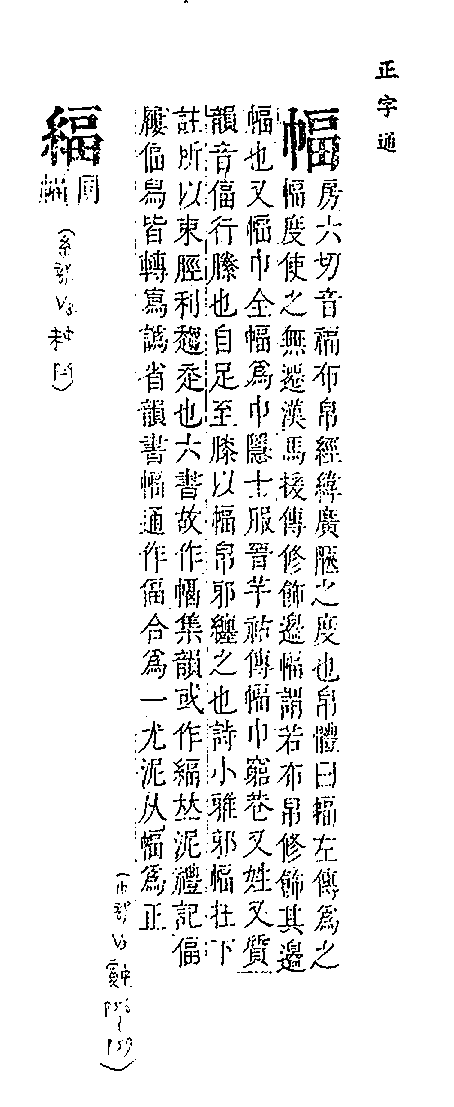 正字通
幅
房六切音福布帛經緯廣陿之度也帛體曰幅左傳爲之
幅度使之無遷漢馬援傳修飾邊幅謂若布帛修飾其邊
幅也又幅巾全幅爲巾隱士服晉羊祜傳幅巾窮巷又姓又質
韻音偪行縢也自足至膝以幅帛邪纏之也詩小雅邪幅在下
註所以束脛利趨走也六書故作幅集韻或作緼𠀤泥禮記偪
屨偪舄皆轉寫譌省韻書幅通作偪合爲一尤泥从幅爲正
(
緼
同幅
(糸部